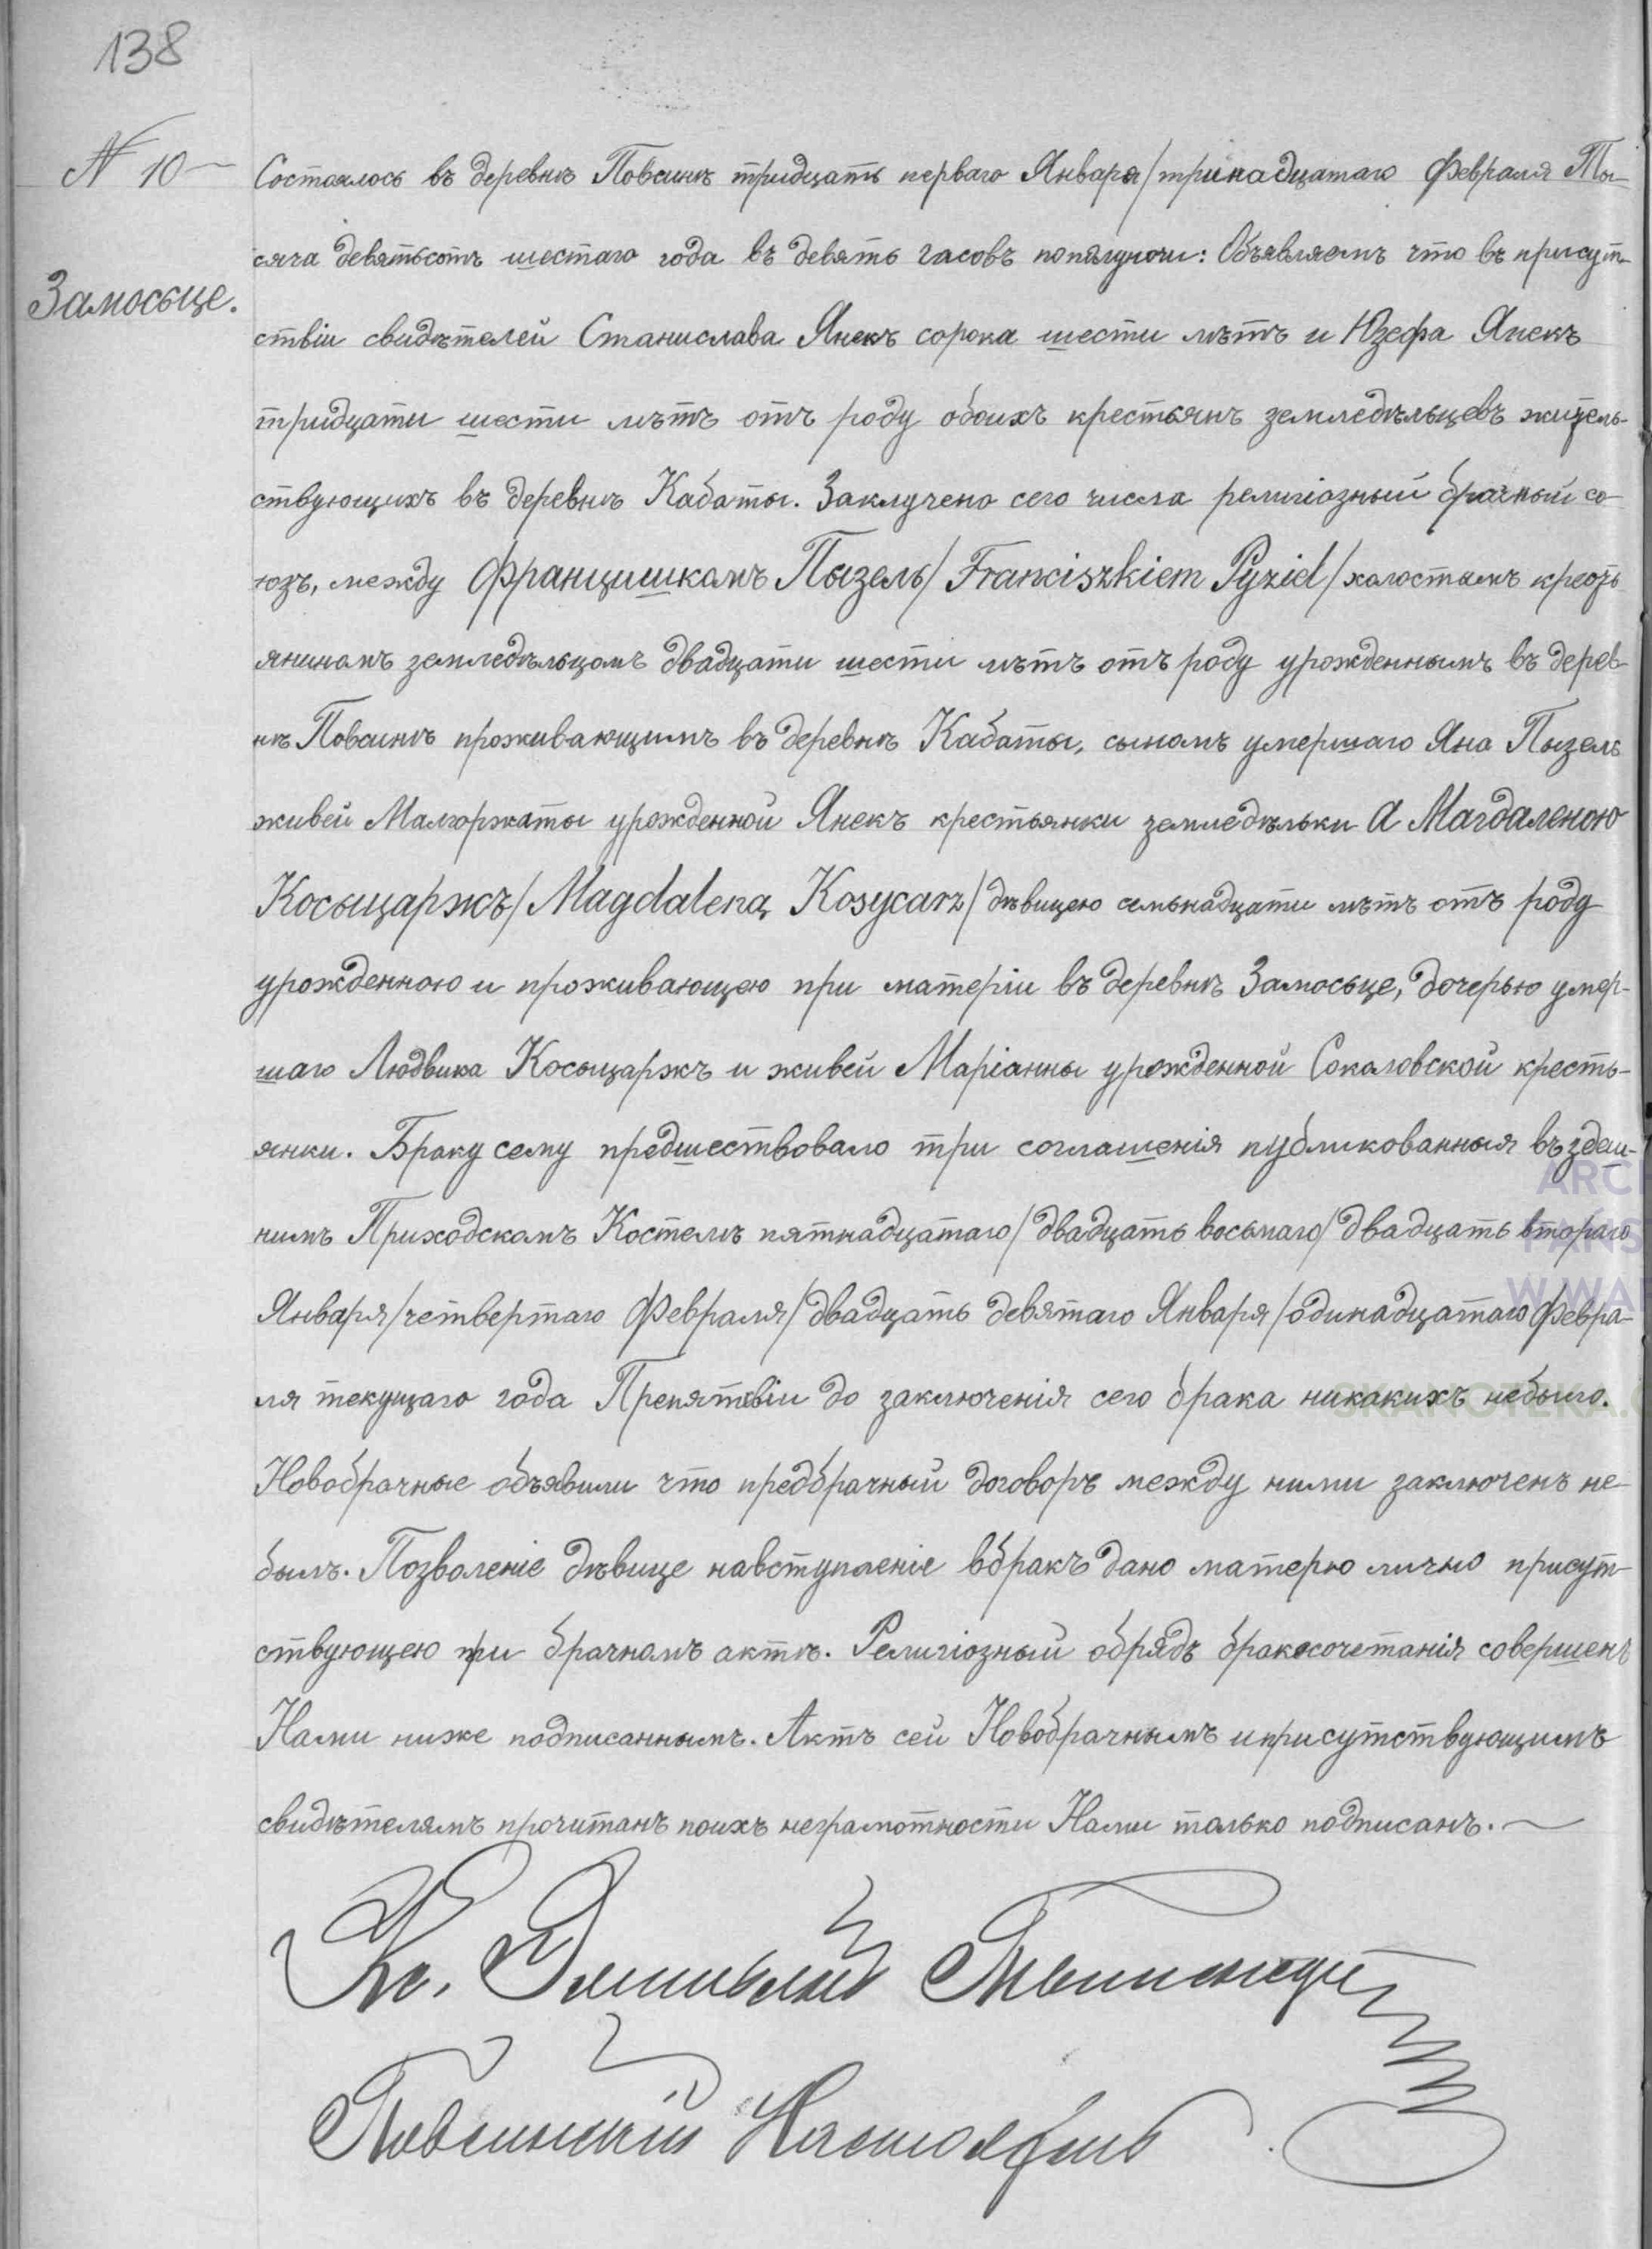 138
N 10
Состоялось въ деревнѣ Повсинѣ тридцать перваго Января/тринадцатаго Февраля Ты-
сяча девятьсотъ шестаго года въ девять часовъ пополуночи: Объявляемъ что въ присут-
Замосьце.
ствіи свидѣтелей Станислава Янекъ сорока шести лѣтъ и Юзефа Янекъ
тридцати шести лѣтъ отъ роду обоихъ крестьянъ земледѣльцевъ житель-
ствующихъ въ деревнѣ Кабаты. Заключено сего числа религіозный брачный со-
юзъ, между Францишкомъ Пызель/Franciszkiem Pyziel/холостымъ кресть
яниномъ земледѣльцомъ двадцати шести лѣтъ отъ роду урожденнымъ въ дерев-
нѣ Повсинѣ проживающимъ въ деревнѣ Кабаты, сыномъ умершаго Яна Пызель
живей Малгоржаты урожденной Янекъ крестьянки земледѣльки а Магдаленою
Косыцаржъ/Magdaleną Kosycarz/дѣвицею семьнадцати лѣтъ отъ роду
урожденною и проживающею при матеріи въ деревнѣ Замосьце, дочерью умер-
шаго Людвика Косыцаржъ и живей Маріанны урожденной Соколовской кресть-
янки. Браку сему предшествовало три соглашенія публикованныя въ здеш-
нимъ Приходскомъ Костелѣ пятнадцатаго/двадцать восьмаго/двадцать втораго
Января/четвертаго Февраля/двадцать девятаго Января/одинадцатаго Февра-
ля текущаго года Препятвіи до заключенія сего брака никакихъ небыло.
Новобрачные объявили что предбрачный договоръ между ними заключенъ не-
былъ. Позволеніе дѣвице навступленіе вбракъ дано матерю лично присут-
ствующею при брачномъ актѣ. Религіозный обрядъ бракосочетанія совершенъ
Нами ниже подписаннымъ. Актъ сей Новобрачнымъ иприсутствующимъ
свидѣтелямъ прочитанъ поихъ неграмотности Нами только подписанъ.
Кс.
Повсинскій Настоятель
ARC
PAŃS
W WA
SKANOTEKA.